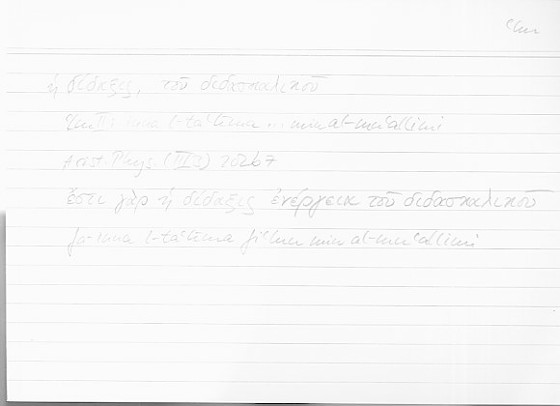 ʿlm
ἡ δίδαξις, τοῦ διδασκαλικοῦ
inna t-taʿlīma ... mina l-muʿallimi
Arist. Phys. (III 3) 202b7
ἔστι γὰρ ἡ δίδαξις ἐνέργεια τοῦ διδασκαλικοῦ
fa-inna t-taʿlīma fiʿlun mina l-muʿallimi